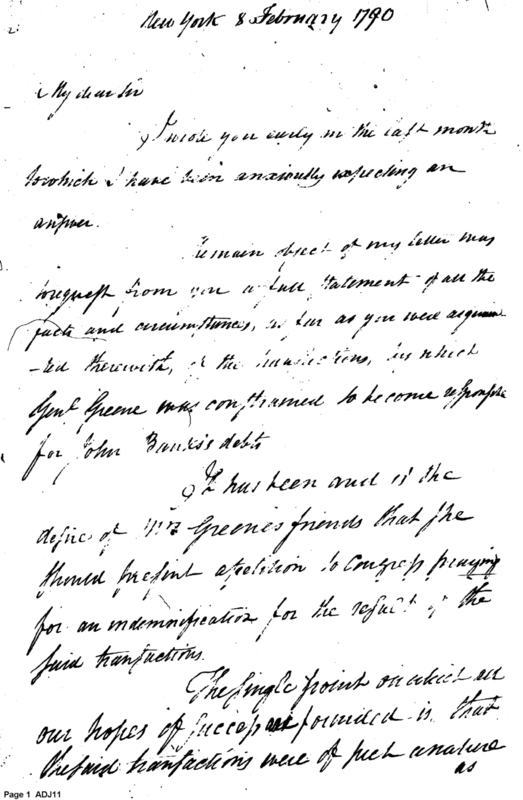 New York 8 February 1790
My dear Sir
I wrote you early in the last month
to which I have been anxiously expecting an
answer.
The main object of my letter was
to request from you a full statement of all the
facts and circumstances, as far as you were acquain
-ted therewith, of the transactions, by which
Genl Greene was constrained to become responsible
for John Banks's debts
It has been and is the
desire of Mrs Greene's friends that she
should present a petition to Congress praying
for an indemnification for the result of the
said transactions.
The single point on which all
our hopes of success are founded is that
the said transactions were of such a nature
as
Page 1 ADJ11